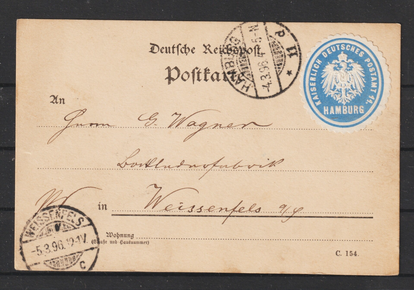 Deutsche Reichspost
Postkarte
HAMBURG
4.3.96.
P 11
*
KAISERLICH DEUTSCHES POSTAMT 11.
HAMBURG
An
Herrn G. Wagner
Lacklederfabrik
in Weissenfels a/S
Wohnung
(Straße und Hausnummer)
WEISSENFELS
-5.3.96.
C
C. 154.